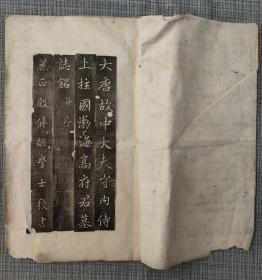 大唐故中大夫守内侍
上柱國渤海高府君墓
誌銘并序
麗正殿修撰學士校書